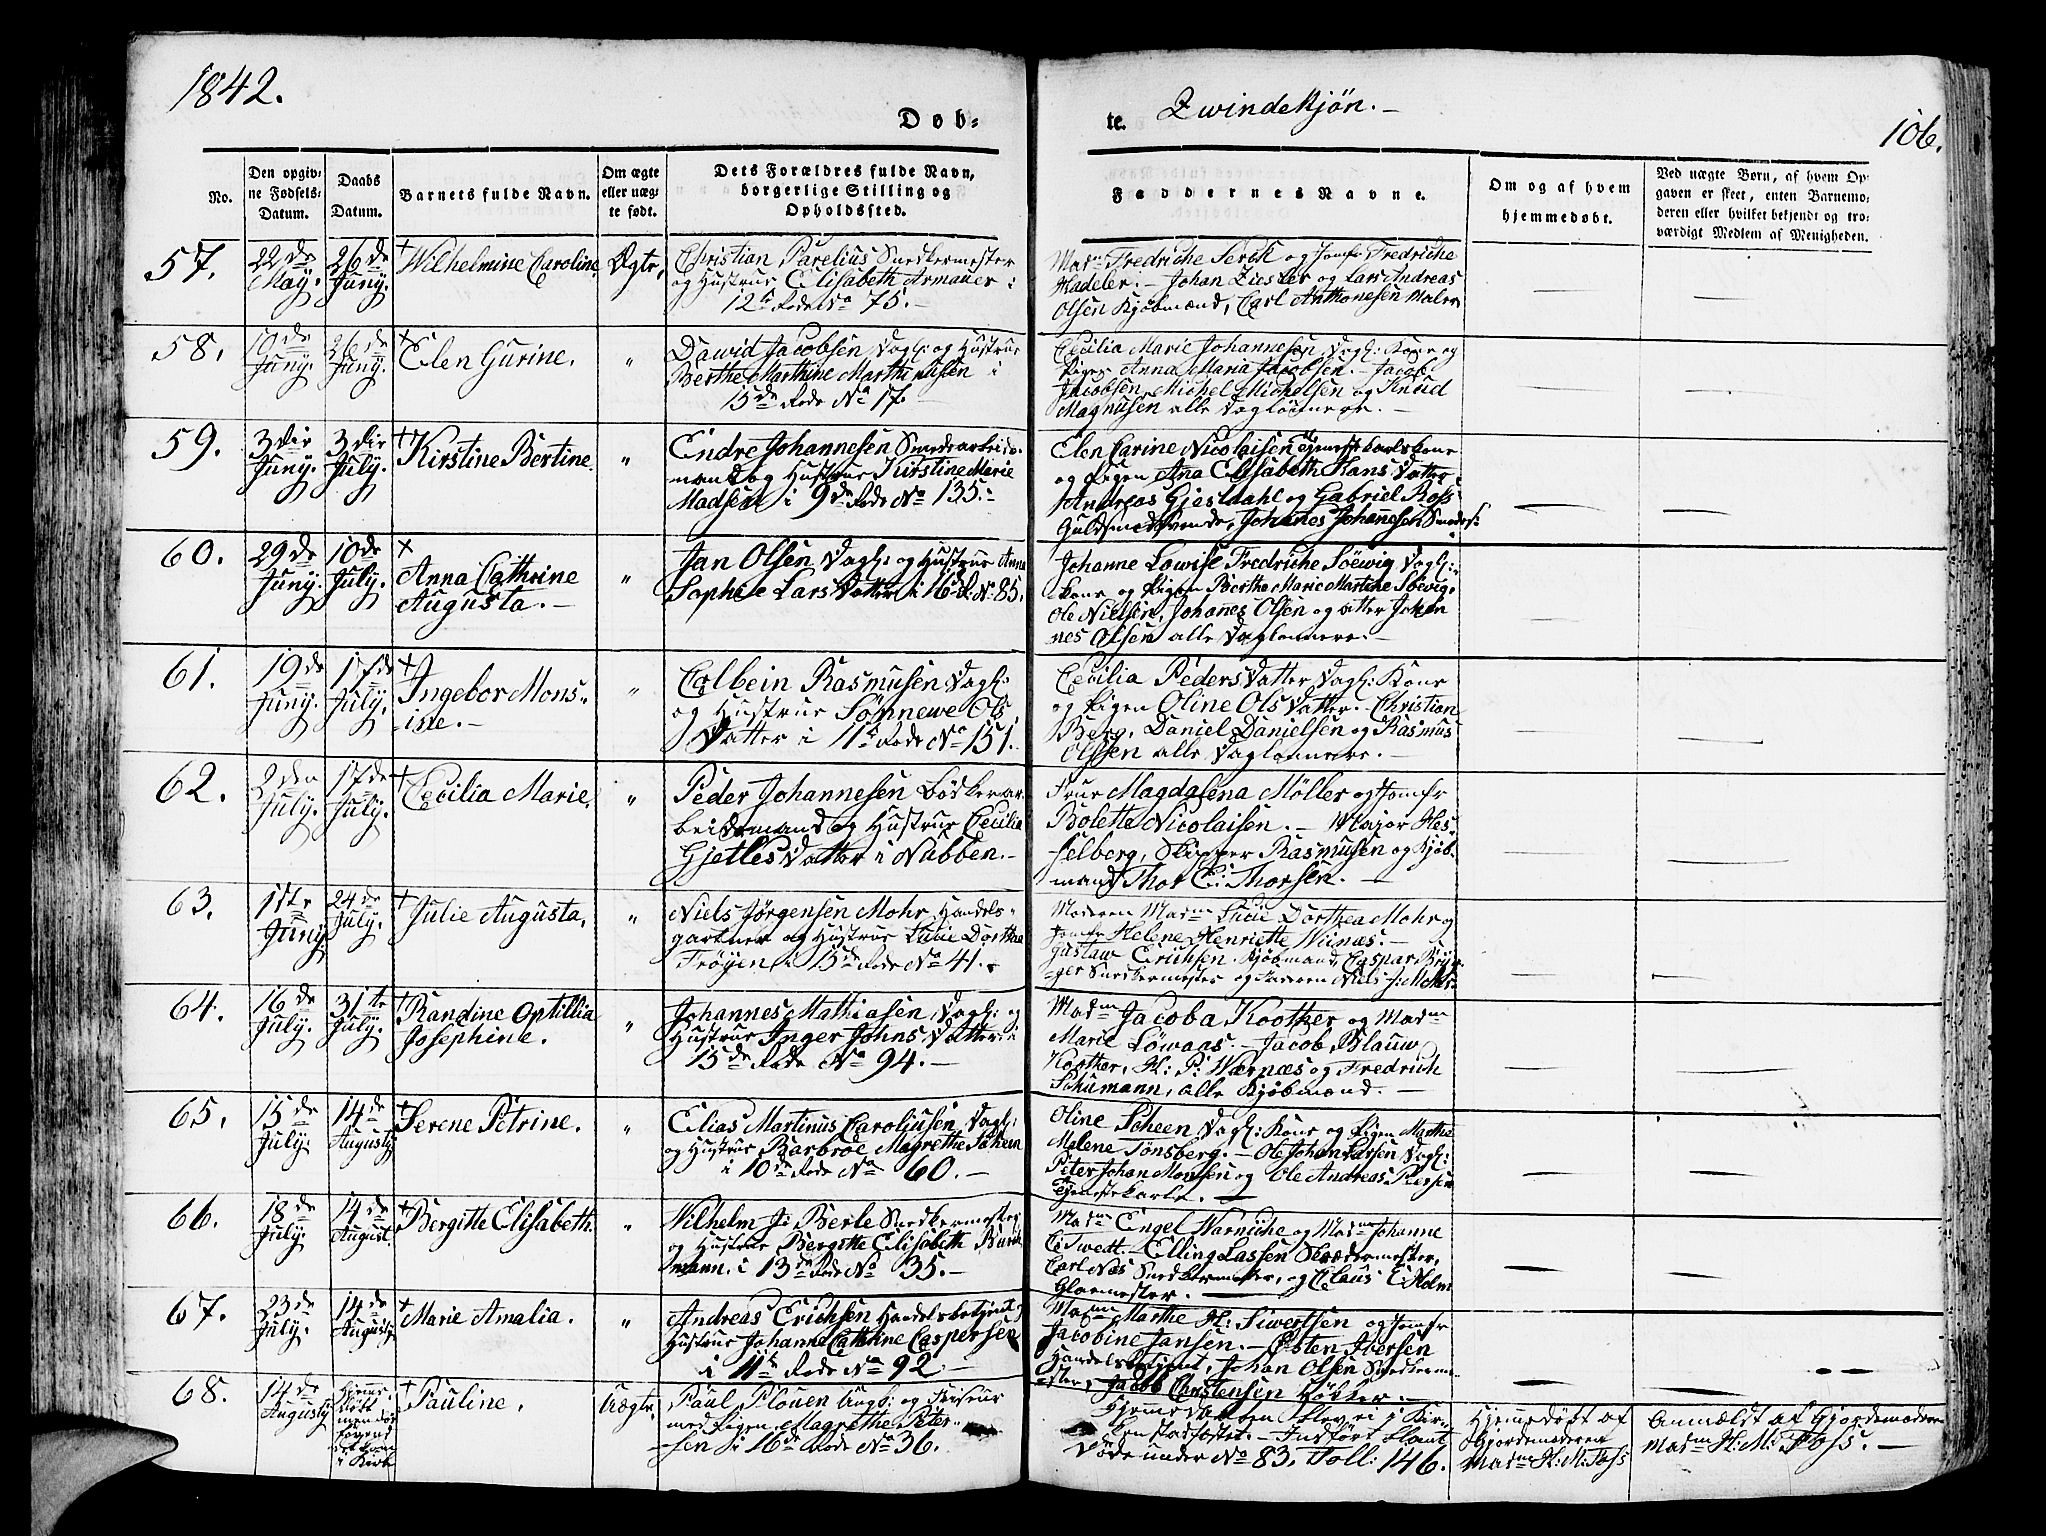 1842.
Døb-
te.
Qwindekjøn. —
106.
No.
Den opgiv-
ne Fødsels-
Datum.
Daabs
Datum.
Barnets fulde Navn.
Om ægte
eller uæg-
te født.
Dets Forældres fulde Navn,
borgerlige Stilling og
Opholdssted.
Faddernes Navne.
Om og af hvem
hjemmedøbt.
Ved uægte Børn, af hvem Op-
gaven er skeet, enten Barnemo-
deren eller hvilket bekjendt og tro-
værdigt Medlem af Menigheden.
57.
22de
May.
26de
Juny.
Wilhelmine Caroline.
Ægte,
Christian Parelius Snedkermester
og Hustrue Elisabeth Armauer i
12te Rode No 75. —
Madm Fredriche Serck og Jomfr Fredriche
Madeler. — Johan Ziesler og Lars Andreas
Olsen Kjøbmænd, Carl Anthonesen Maler
58.
10de
Juny.
26de
Juny.
Elen Gurine.
"
Dawid Jacobsen Dagl: og Hustrue
Berthe Marthine Marthinusen i
15de Rode No 17. —
Cecilia Marie Johannesen, Dagl: Kone og
Pigen Anna Maria Jacobsen. — Jacob
Jacobsen, Michel Michelsen og Knud
Magnusen alle Daglønnere. —
59.
3die
Juny.
3die
July.
Kirstine Bertine.
"
Endre Johannesen Smedearbeids-
mand og Hustrue Kirstine Marie
Madsen i 9de Rode No 135.
Elen Carine Nicolaisen Tjenestkarls Kone
og Pigen Ana Elisabeth Hans Datter
Andreas Gjesdahl og Gabriel Ross
Guldsmedsvende, Johanes Johannesen Smedes:
60.
29de
Juny.
10de
July.
Anna Cathrine
Augusta. —
"
Jan Olsen Dagl: og Hustrue Anna
Sophie Lars Datter i 16 R: No 85.
Johanne Lowise Fredriche Söewig Dagl:
Kone og Pigen Berthe Marie Martine Söewig.
Ole Nielsen, Johanes Olsen og atter Johan
nes Olsen alle Daglønnere. —
61.
19de
Juny.
17de
July.
Ingebor Mons-
ine. —
"
Colbein Rasmusen Dagl:
og Hustrue Sönnewe Ols
Datter i 11te Rode No 151.
Cecilia Peders Datter Dagl: Kone
og Pigen Oline Ols Datter. — Christian
Berg, Daniel Danielsen og Rasmus
Olssen alle Daglønnere. —
62.
2den
July.
17de
July.
Cecilia Marie.
"
Peder Johannesen Bødkerar-
beidsmand og Hustrue Cecilia
Gjetles Datter i Nabben. —
Frue Magdalena Møller og Jomfr
Bolette Nicolaisen. — Major Hes-
selberg, Skipper Rasmusen og Kjøb-
mand Thor E: Thorsen. —
63.
1ste
Juny
24de
July.
Julie Augusta.
"
Niels Jørgensen Mohr Handels-
gartner og Hustrue Lucie Dorthea
Frøyen i 15de Rode No 41.
Moderen Madm Lucie Dorthea Mohr og
Jomfr Helene Henriette Wiinæs. —
Gustaw Erichsen Kjøbmand, Caspar Bryn-
ger Snedkermester og Faderen Niels J: Mohr
64.
16de
July.
31te
July.
Randine Optillia
Josephine.
"
Johannes Mathiasen, Dagl: og
Hustrue Inger Johns Datter i
15de Rode No 94. —
Madm Jacoba Koother og Madm
Marie Löwaas. — Jacob Blauw
Koother, H: P: Wærnæs og Fredrich
Schumann, alle Kjøbmænd. —
65.
15de
July.
14de
Augusty
Serene Petrine.
"
Elias Martinus Caroliusen, Dagl:
og Hustrue Barbroe Magrethe Scheen
i 10de Rode No 60. —
Oline Scheen Dagl: Kone og Pigen Marthe
Malene Tönsberg. — Ole Johan Larsen Dagl:
Peter Johan Monsen og Ole Andreas Persen
Tjenestekarle. —
66.
18de
July.
14de
August.
Bergitte Elisabeth.
"
Wilhelm J: Berle Snedkermester
og Hustrue Bergitte Elisabeth
mann. i 13de Rode No 35. —
Madm Engel Warniche og Madm Johanne
C: Twedt. — Elling Lassen Skrædermester,
Carl Næs Snedkermester, og Claus C: Holm
Glarmester. —
67.
23de
July.
14de
Augusty.
Marie Amalia.
"
Andreas Erichsen Handelsbetjent og
Hustrue Johanne Cathrine Caspersen
i 11te Rode No 92 —
Madm Marthe H: Siwertsen og Jomfr
Jacobine Jansen. — Østen Iversen
Handelsbetjent, Johan Olsen Snedkerme-
ster, Jacob Carstensen Høkker. —
68.
14de
Augusty
Hjemme
døbt
men død
forend
det kom
i Kirk
Pauline.
Uægte.
Paul Plouen Ungk: og Friseur
med Pigen Magrethe Peter-
sen i 16de Rode No 36.
Hjemmedaaben blev ei i Kir-
ken stadfæstet. — Indført blant
Døde under No 83, Foll: 146.
Hjemmedøbt af
Gjordemoderen
Madm H: M: Foss
Anmældt af Gjordemoderen
Madm H: M: Foss. —